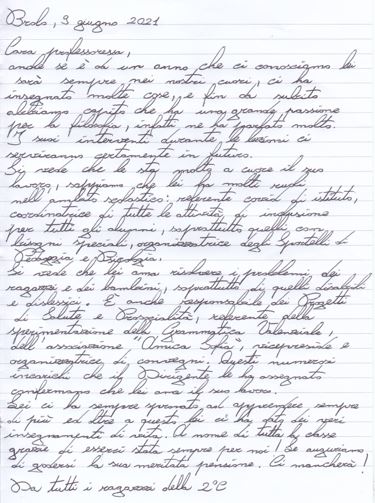 Brolo, 3 giugno 2021
Cara professoressa,
anche se è da un anno che ci conosciamo lei
sarà sempre nei nostri cuori, ci ha
insegnato molte cose, e fin da subito
abbiamo capito che ha una grande passione
per la filosofia, infatti ne ha parlato molto.
I suoi interventi durante le lezioni ci
serviranno certamente in futuro.
Si vede che le sta molto a cuore il suo
lavoro, sappiamo che lei ha molti ruoli
nell'ambito scolastico: referente covid di istituto,
coordinatrice di tutte le attività di inclusione
per tutti gli alunni, soprattutto quelli con
bisogni speciali, organizzatrice degli Sportelli di
e
Si vede che lei ama risolvere i problemi dei
ragazzi e dei bambini, soprattutto di quelli disabili
e dislessici. È anche responsabile dei Progetti
di Salute e Prosocialità, referente della
sperimentazione della Grammatica Valenziale,
dell'associazione "Amica Sofia", vicepreside e
organizzatrice di convegni. Questi numerosi
incarichi che il Dirigente le ha assegnato
confermano che lei ama il suo lavoro.
Lei ci ha sempre spronato ad apprendere sempre
di più ed oltre a questo lei ci ha dato dei veri
insegnamenti di vita. A nome di tutta la classe
grazie di esserci stata sempre per noi! Le auguriamo
di godersi la sua meritata pensione. Ci mancherà!
Da tutti i ragazzi della 2°C